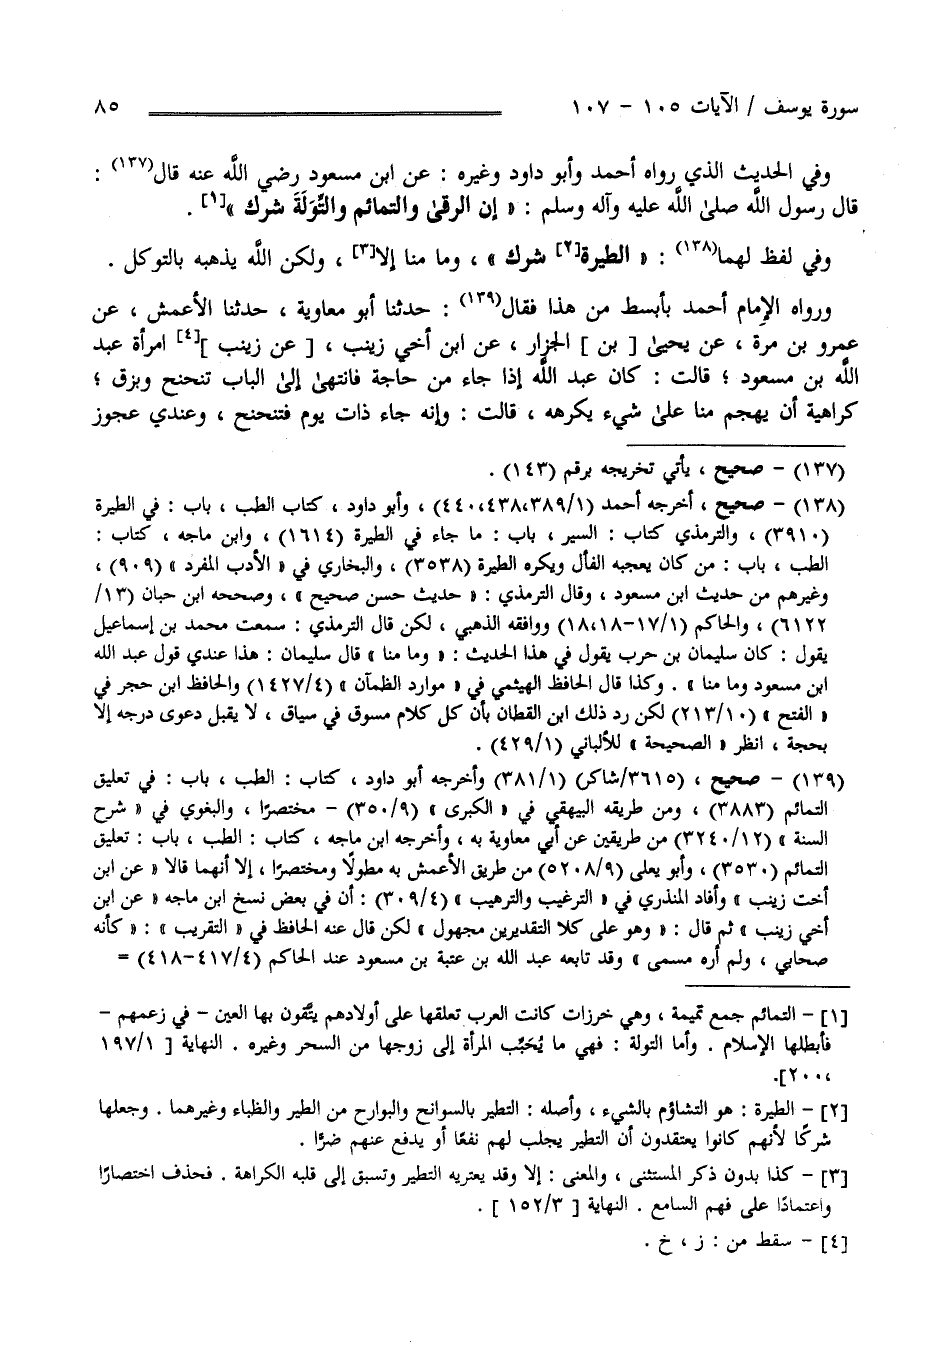 سورة يوسف / الآيات ١٠٥ - ١٠٧ ٨٥
وفي الحديث الذي رواه أحمد وأبو داود وغيره : عن ابن مسعود رضي اللَّه عنه قال(١٣٧) :
قال رسول اللَّه صلىٰ اللَّه عليه وآله وسلم : « إن الرقىٰ والتمائم والتِّوَلَةَ شرك »[١] .
وفي لفظ لهما(١٣٨) : « الطيرة[٢] شرك » ، وما منا إلا[٣] ، ولكن اللَّه يذهبه بالتوكل .
ورواه الإمام أحمد بأبسط من هذا فقال(١٣٩) : حدثنا أبو معاوية ، حدثنا الأعمش ، عن
عمرو بن مرة ، عن يحيىٰ [ بن ] الجزار ، عن ابن أخي زينب ، [ عن زينب ][٤] امرأة عبد
اللَّه بن مسعود ؛ قالت : كان عبد اللَّه إذا جاء من حاجة فانتهىٰ إلىٰ الباب تنحنح وبزق ؛
كراهية أن يهجم منا علىٰ شيء يكرهه ، قالت : وإنه جاء ذات يوم فتنحنح ، وعندي عجوز
(١٣٧) - صحيح ، يأتي تخريجه برقم (١٤٣) .
(١٣٨) - صحيح ، أخرجه أحمد (٣٨٩/١ ،٤٣٨ ،٤٤٠) ، وأبو داود ، كتاب الطب ، باب : في الطيرة
(٣٩١٠) ، والترمذي كتاب : السير ، باب : ما جاء في الطيرة (١٦١٤) ، وابن ماجه ، كتاب :
الطب ، باب : من كان يعجبه الفأل ويكره الطيرة (٣٥٣٨) ، والبخاري في « الأدب المفرد » (٩٠٩) ،
وغيرهم من حديث ابن مسعود ، وقال الترمذي : « حديث حسن صحيح » ، وصححه ابن حبان (١٣/
٦١٢٢) ، والحاكم (١٧/١-١٨ ،١٨) ووافقه الذهبي ، لكن قال الترمذي : سمعت محمد بن إسماعيل
يقول : كان سليمان بن حرب يقول في هذا الحديث : « وما منا » قال سليمان : هذا عندي قول عبد الله
ابن مسعود وما منا » . وكذا قال الحافظ الهيثمي في « موارد الظمآن » (١٤٢٧/٤) والحافظ ابن حجر في
« الفتح » (٢١٣/١٠) لكن رد ذلك ابن القطان بأن كل كلام مسوق في سياق ، لا يقبل دعوى درجه إلا
بحجة ، انظر « الصحيحة » للألباني (٤٢٩/١) .
(١٣٩) - صحيح ، (٣٦١٥/شاكر) (٣٨١/١) وأخرجه أبو داود ، كتاب : الطب ، باب : في تعليق
التمائم (٣٨٨٣) ، ومن طريقه البيهقي في « الكبرى » (٣٥٠/٩) - مختصرًا ، والبغوي في « شرح
السنة » (٣٢٤٠/١٢) من طريقين عن أبي معاوية به ، وأخرجه ابن ماجه ، كتاب : الطب ، باب : تعليق
التمائم (٣٥٣٠) ، وأبو يعلى (٥٢٠٨/٩) من طريق الأعمش به مطولًا ومختصرًا ، إلا أنهما قالا « عن ابن
أخت زينب » وأفاد المنذري في « الترغيب والترهيب » (٣٠٩/٤) : أن في بعض نسخ ابن ماجه « عن ابن
أخي زينب » ثم قال : « وهو على كلا التقديرين مجهول » لكن قال عنه الحافظ في « التقريب » : « كأنه
صحابي ، ولم أره مسمى » وقد تابعه عبد الله بن عتبة بن مسعود عند الحاكم (٤١٧/٤-٤١٨) =
[١] - التمائم جمع تميمة ، وهي خرزات كانت العرب تعلقها على أولادهم يتَّقون بها العين - في زعمهم -
فأبطلها الإسلام . وأما التولة : فهي ما يُحَبِّب المرأة إلى زوجها من السحر وغيره . النهاية [ ١٩٧/١
،٢٠٠].
[٢] - الطيرة : هو التشاؤم بالشيء ، وأصله : التطير بالسوانح والبوارح من الطير والظباء وغيرهما . وجعلها
شركًا لأنهم كانوا يعتقدون أن التطير يجلب لهم نفعًا أو يدفع عنهم ضرًا .
[٣] - كذا بدون ذكر المستثنى ، والمعنى : إلا وقد يعتريه التطير وتسبق إلى قلبه الكراهة . فحذف اختصارًا
واعتمادًا على فهم السامع . النهاية [ ١٥٢/٣ ] .
[٤] - سقط من : ز ، خ .